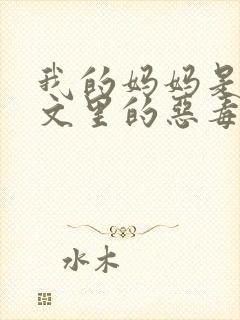 我的妈妈是
文里的恶毒
水木